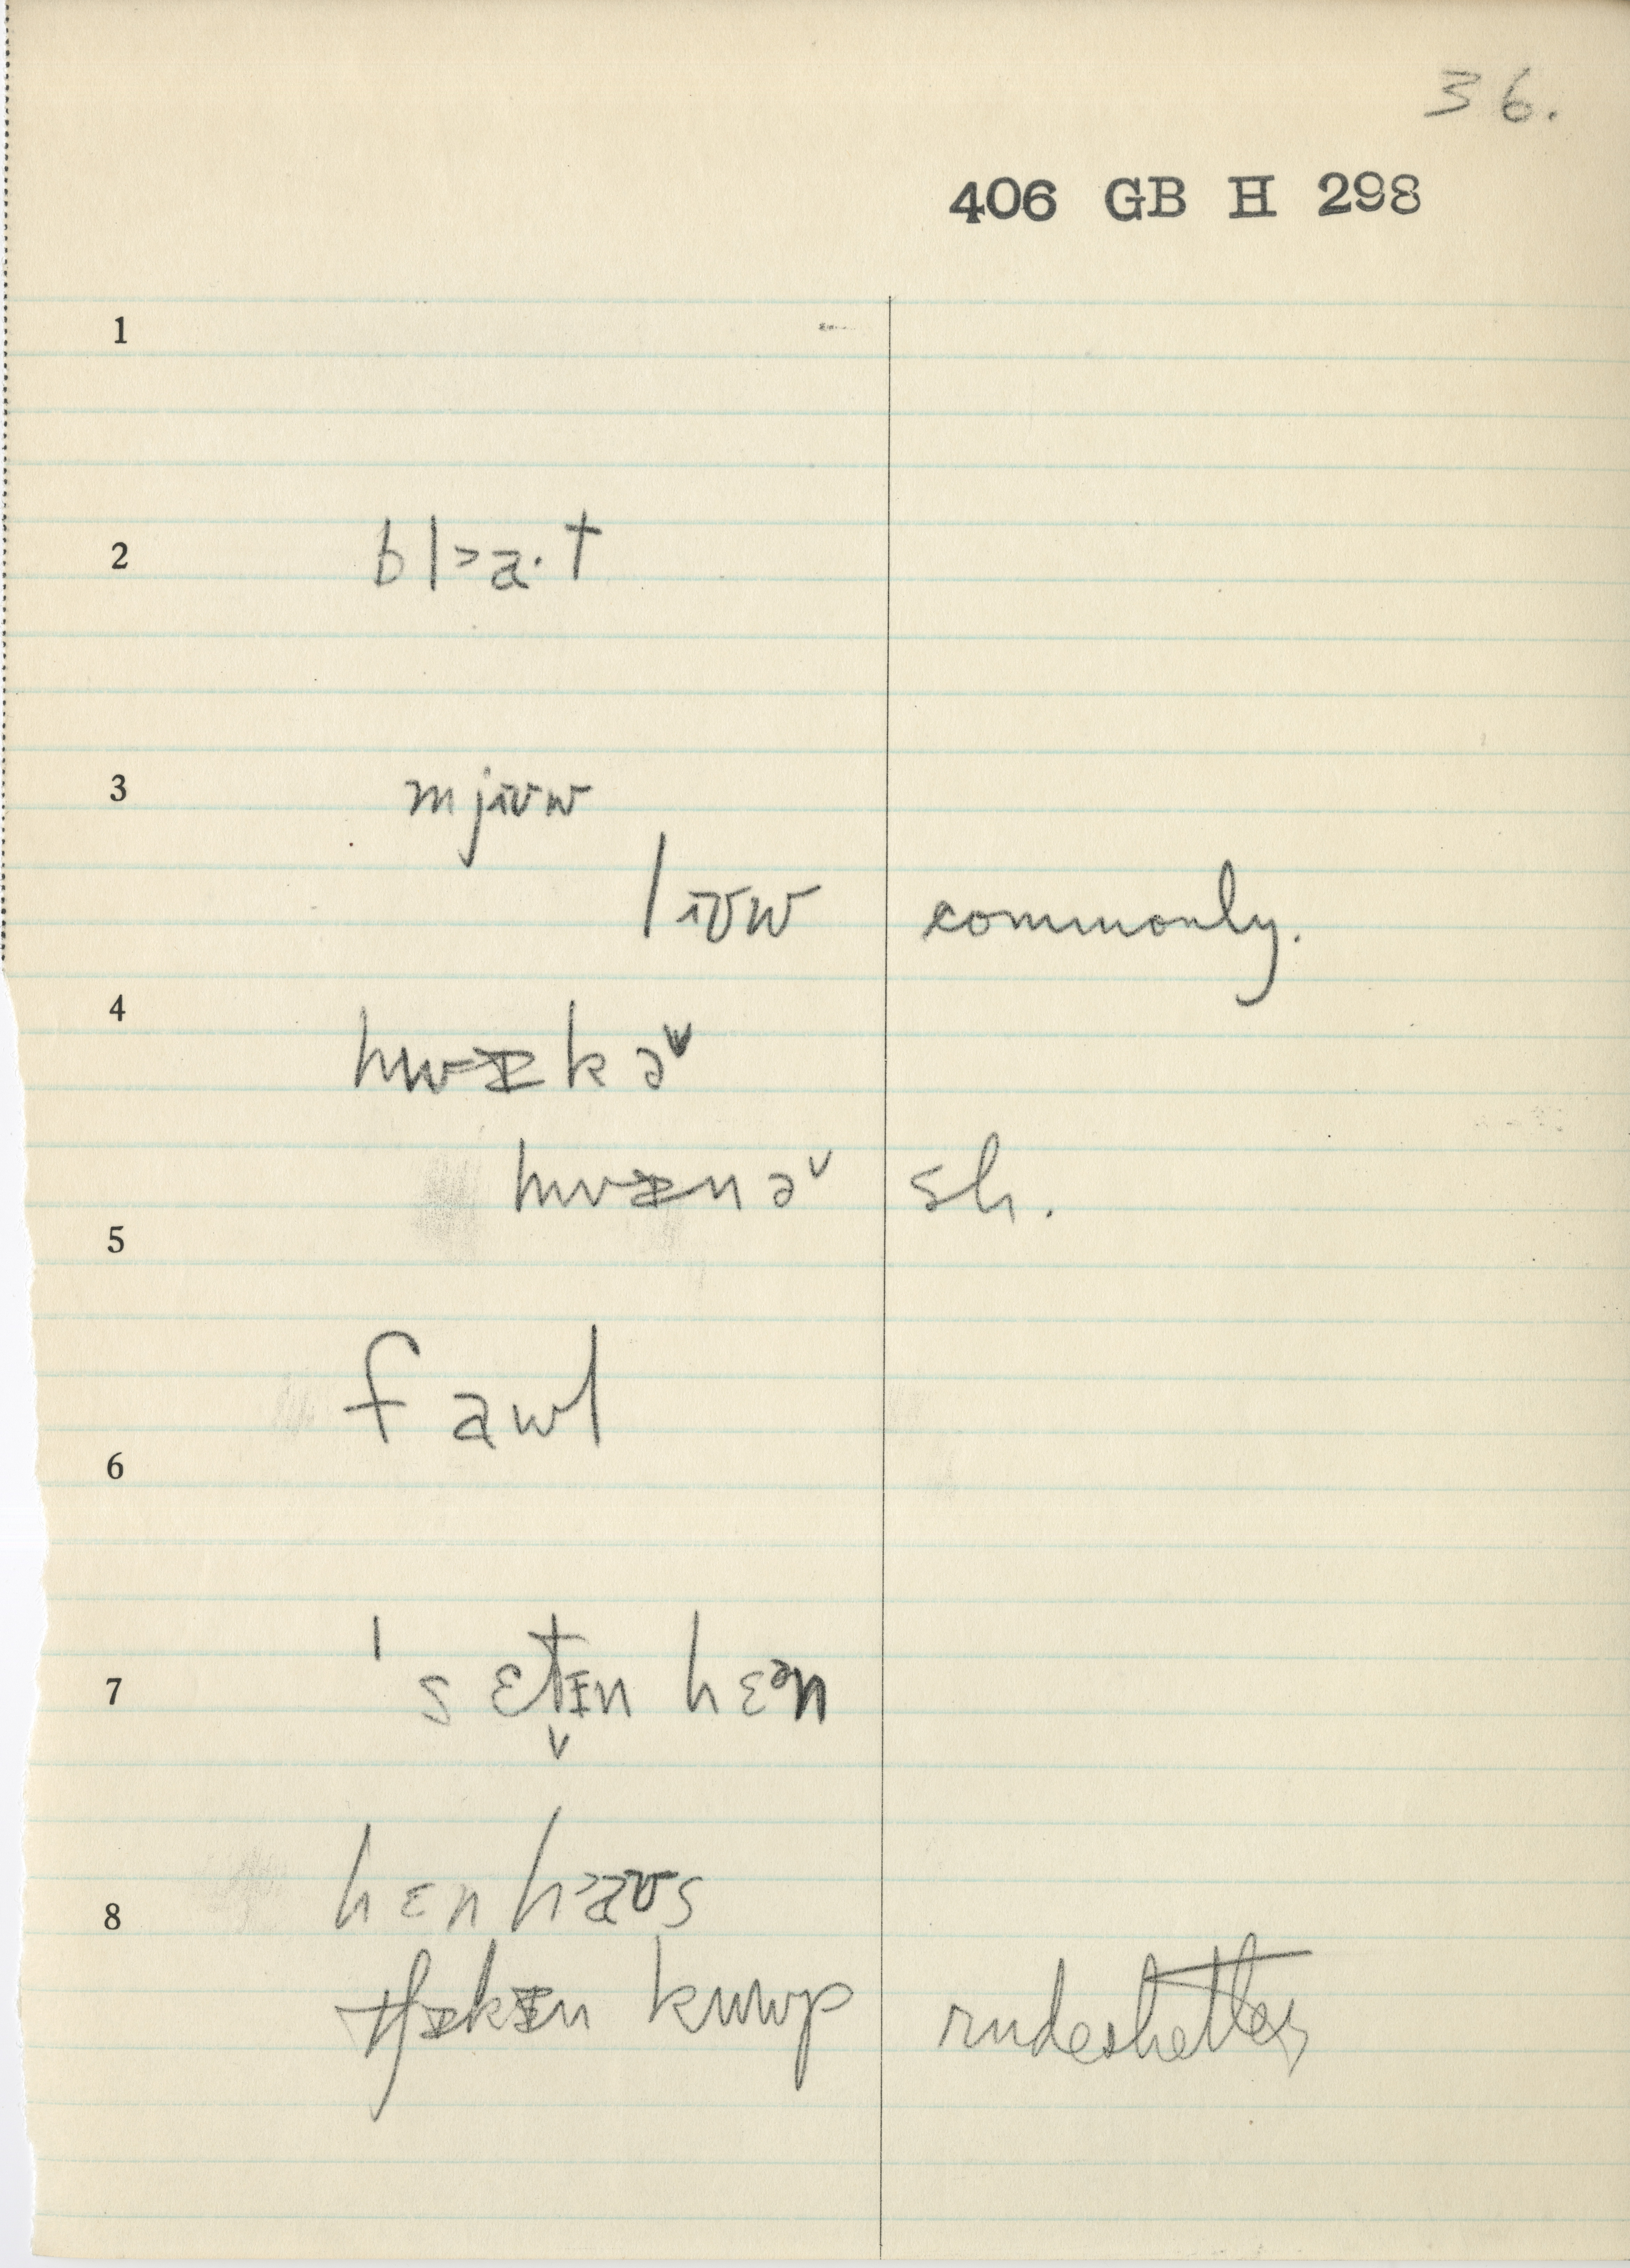 36.
406 GB H 298
1
2 bl˃a·t
3 mjɪʊw
lɪʊw commonly.
4 hwɪkəᵛ
hwɪnəᵛ sh.
5
fawl
6
7 ˈsɛt̬ɪn hɛᵊn
hɛnh˃aʊs
8
tʃɪkɪn kuwp rude shelter